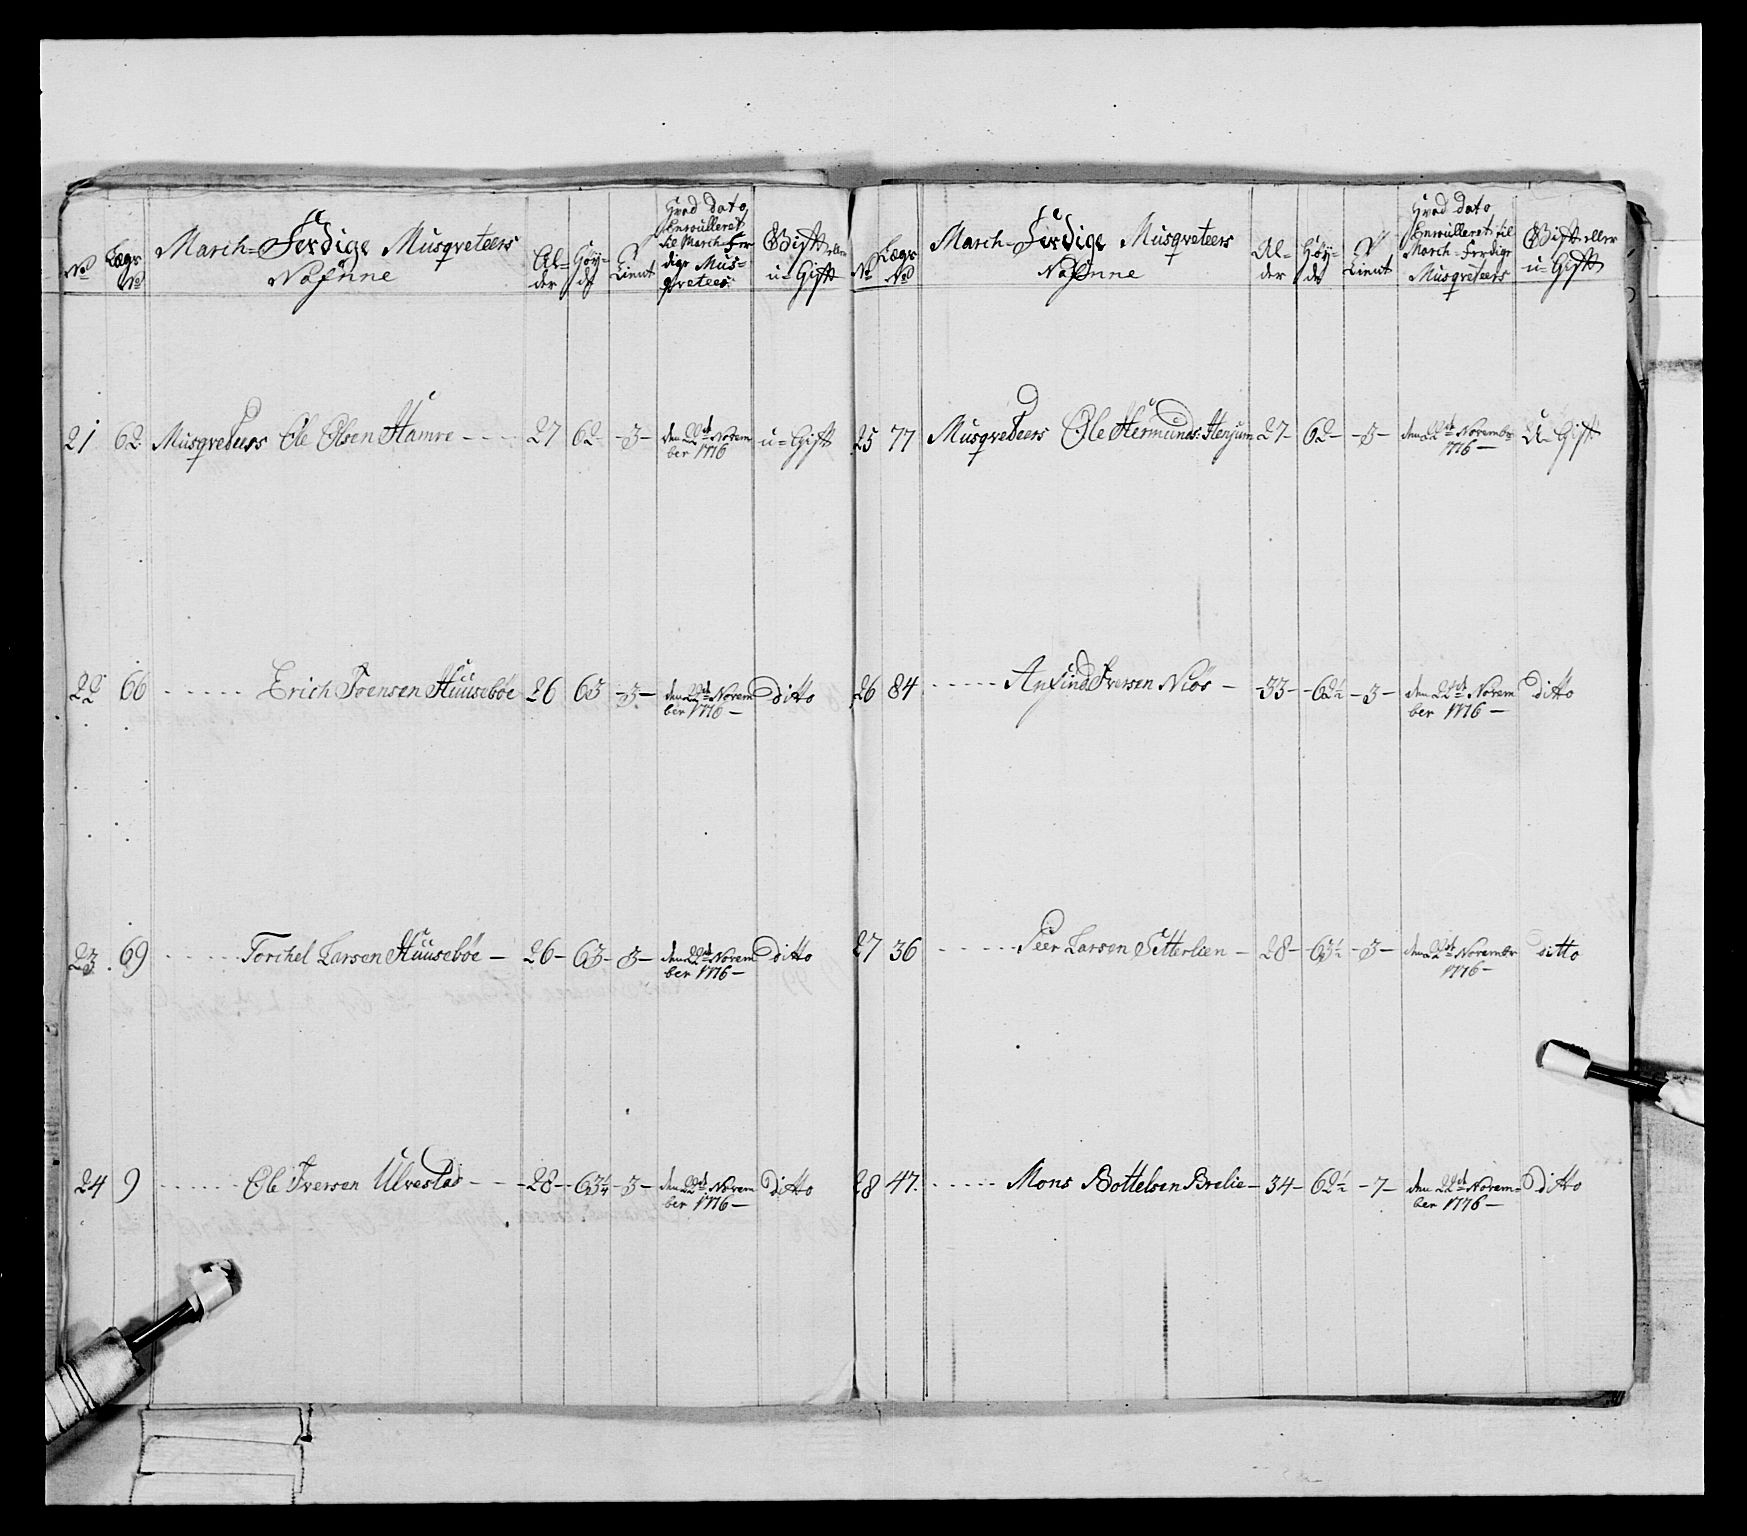 No Lægs No March-Ferdige Musqveteers Nafnne Al-der Höy-de T Lient Hvad Dato Enroulleret til March-Fer dige Mus-qveteer Gift eller u-Gift
21 62 Musqveteers Ole Olsen Hamre - - - 27 62 -3- den 22de Novem ber 1776 u-Gift
22 66 - - - - - Erich Joensen Huusebøe 26 63 -3- den 22de Novem ber 1776 - Ditto
23 69 - - - - - Torchel Larsen Huusebøe - 26 - 63 - 3 - den 22de Novem ber 1776 - Ditto
24 9 - - - - - - Ole Iversen Ulvestad - - - 28 - 63¼ - 3 - den 22de Novem ber 1776 - Ditto
No Lægs No March-Ferdige Musqveteers Nafnne Al-der Höy-de T Lient Hvad Dato Enroulleret til March-Ferdige Musqveteers Gift eller u-Gift
25 77 Musqveteers Ole Hermunds: Henjum 27 - 62 - -3- den 22de Novembr 1776 - U-Gift
26 84 - - - - - Anfind Iversen Niös - 33 - 62½ - 3 - den 22de Novem ber 1776 - Ditto
27 36 - - - - - - Peer Larsen Sitterlien - 28 - 63½ - 3 - den 22de Novembr 1776 - Ditto
28 47. - - - - - Mons Bottelsen Brelie - 34 - 62½ - 7 - den 22de Novem-ber 1776 - Ditto